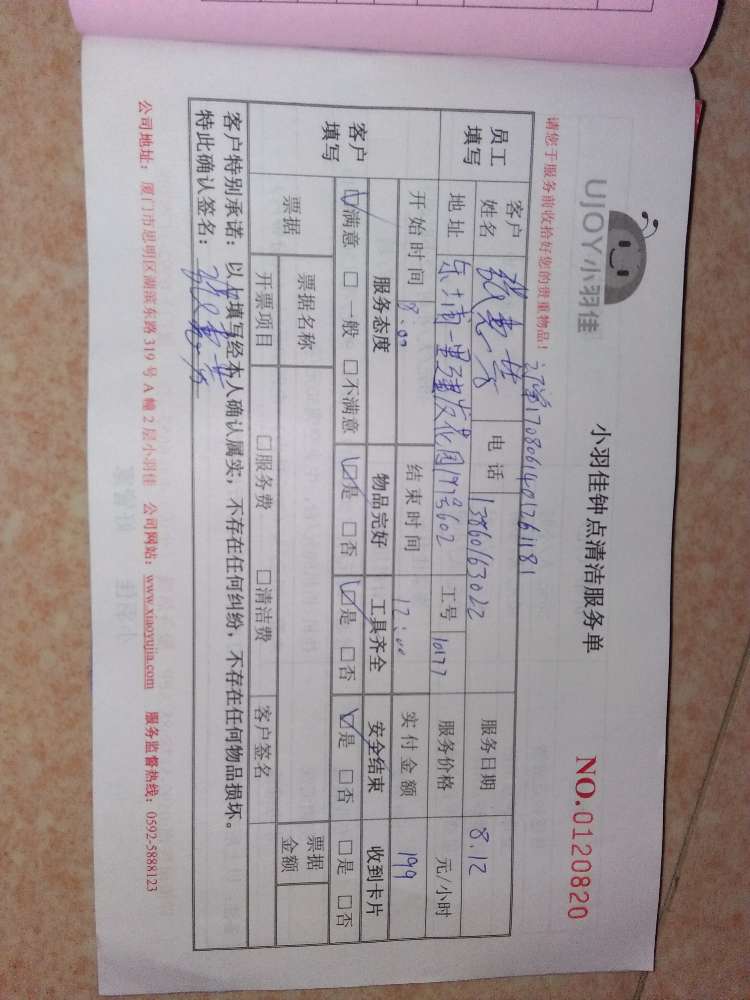 UJOY小羽佳
小羽佳钟点清洁服务单
NO.0120820
请您于服务前收拾好您的贵重物品！
订单1708061401261181
员工填写
客户姓名
电话 13860163022
服务日期 8.12
地址 乐士南里建发花园197号602
工号 10177
服务价格 元/小时
开始时间 8:00
结束时间 12:00
实付金额 199
客户填写
服务态度 物品完好 工具齐全 安全结束 收到卡片
☑满意 □一般 □不满意 ☑是 □否 ☑是 □否 ☑是 □否 □是 □否
票据 票据名称 票据金额
开票项目 □服务费 □清洁费 客户签名
客户特别承诺：以上填写经本人确认属实，不存在任何纠纷，不存在任何物品损坏。
特此确认签名：
公司地址：厦门市思明区湖滨东路319号A幢2层小羽佳 公司网站：www.xiaoyujia.com 服务监督热线：0592-5888123